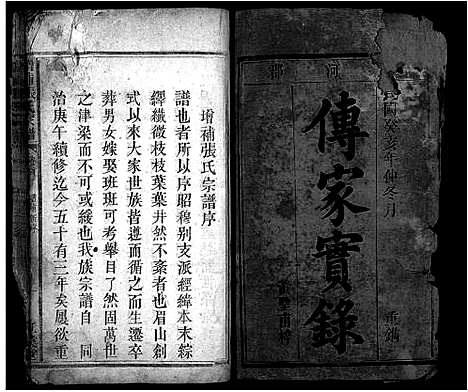 河郡
民國癸亥年仲冬月
傳家實錄
重鐫
增補張氏宗譜序
譜也者所以序昭穆別支派經緯本末綜
繹纖微枝枝葉葉井然不紊者也眉山創
式以來大家世族皆遵而循之而生遷卒
葬男女嫁娶班班可考舉目了然固萬世
之津梁而不可或緩也我族宗譜自同
治庚午續修迄今五十有三年矣屢欲重